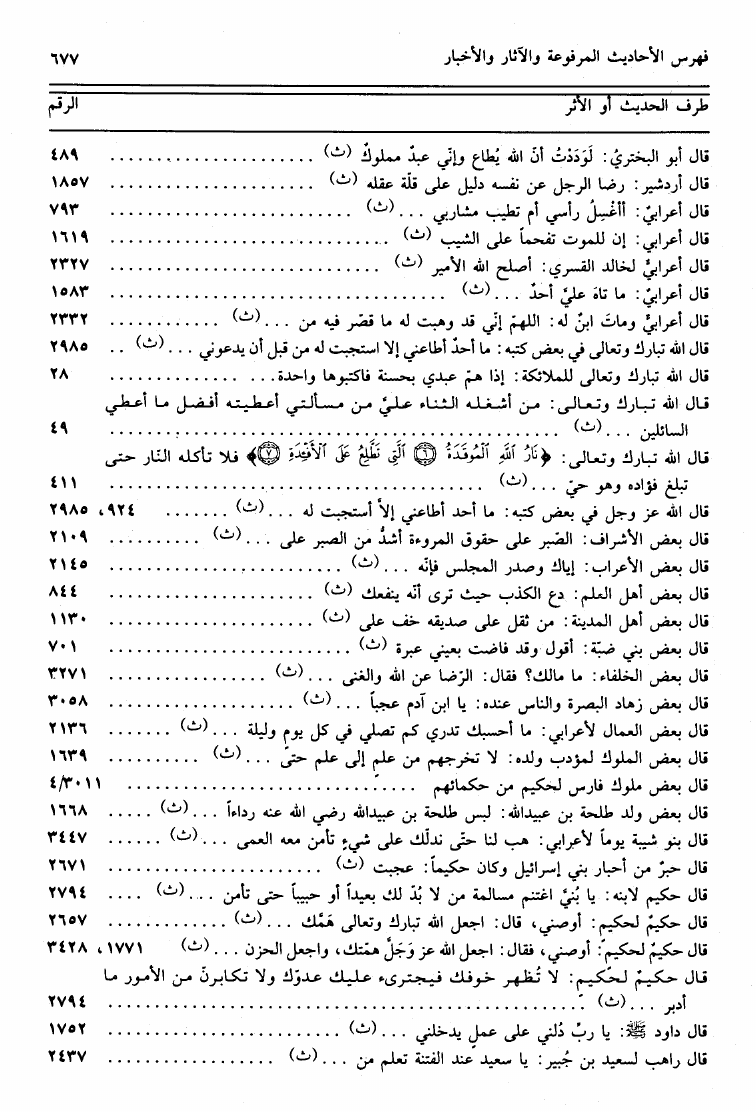 فهرس الأحاديث المرفوعة والآثار والأخبار ٦٧٧
طرف الحديث أو الأثر الرقم
قال أبو البختريُ: لَوَدَدْتُ أنّ الله يُطاع وإنّي عبدٌ مملوكٌ (ث) ...................... ٤٨٩
قال أردشير: رضا الرجل عن نفسه دليل على قلّة عقله (ث) ...................... ١٨٥٧
قال أعرابيٌ: أأغْسِلُ رأسي أم تطيب مشاربي ... (ث) ........................... ٧٩٣
قال أعرابي: إن للموت تفحماً على الشيب (ث) ............................... ١٦١٩
قال أعرابيٌّ لخالد القسري: أصلح الله الأمير (ث) .............................. ٢٣٢٧
قال أعرابيٌ: ما تاهَ عليَّ أحدٌ ... (ث) ..................................... ١٥٨٣
قال أعرابيٌّ وماتَ ابنٌ له: اللهمّ إنّي قد وهبت له ما قصّر فيه من ... (ث) ............ ٢٣٣٢
قال الله تبارك وتعالى في بعض كتبه: ما أحدٌ أطاعني إلا استجبت له من قبل أن يدعوني ... (ث) .. ٢٩٨٥
قال الله تبارك وتعالى للملائكة: إذا همّ عبدي بحسنة فاكتبوها واحدة... .............. ٢٨
قال الله تبارك وتعالى: من أشغله الثناء عليَّ من مسألتي أعطيته أفضل ما أعطي
السائلين ... (ث) ................................................. ٤٩
قال الله تبارك وتعالى: ﴿نَارُ ٱللَّهِ ٱلْمُوقَدَةُ ۝٦ ٱلَّتِى تَطَّلِعُ عَلَى ٱلْأَفْـِٔدَةِ ۝٧﴾ فلا تأكله النّار حتى
تبلغ فؤاده وهو حيّ ... (ث) ....................................... ٤١١
قال الله عز وجل في بعض كتبه: ما أحد أطاعني إلاّ أستجبت له ... (ث) ....... ٩٢٤، ٢٩٨٥
قال بعض الأشراف: الصّبر على حقوق المروءة أشدُّ من الصبر على ... (ث) .......... ٢١٠٩
قال بعض الأعراب: إياك وصدر المجلس فإنّه ... (ث) ........................ ٢١٤٥
قال بعض أهل العلم: دع الكذب حيث ترى أنّه ينفعك (ث) ...................... ٨٤٤
قال بعض أهل المدينة: من ثقل على صديقه خف على (ث) ...................... ١١٣٠
قال بعض بني ضبّة: أقول وقد فاضت بعيني عبرة (ث) .......................... ٧٠١
قال بعض الخلفاء: ما مالك؟ فقال: الرّضا عن الله والغنى ... (ث) ................. ٣٢٧١
قال بعض زهاد البصرة والناس عنده: يا ابن آدم عجباً ... (ث) .................... ٣٠٥٨
قال بعض العمال لأعرابي: ما أحسبك تدري كم تصلي في كل يومٍ وليلة ... (ث) ....... ٢١٣٦
قال بعض الملوك لمؤدب ولده: لا تخرجهم من علمٍ إلى علم حتىّ ... (ث) .......... ١٦٣٩
قال بعض ملوك فارس لحكيم من حكمائهم ............................... ٤/٣٠١١
قال بعض ولد طلحة بن عبيدالله: لبس طلحة بن عبيدالله رضي الله عنه رداءاً ... (ث) ..... ١٦٦٨
قال بنو شيبة يوماً لأعرابي: هب لنا حتّى ندلّك على شيءٍ تأمن معه العمى ... (ث) ...... ٣٤٤٧
قال حبرٌ من أحبار بني إسرائيل وكان حكيماً: عجبت (ث) ...................... ٢٦٧١
قال حكيم لابنه: يا بُنيَّ اغتنم مسالمة من لا بُدّ لك بعيداً أو حبيباً حتى تأمن ... (ث) .... ٢٧٩٤
قال حكيمٌ لحكيم: أوصني، قال: اجعل الله تبارك وتعالى هَمَّك ... (ث) ............. ٢٦٥٧
قال حكيمٌ لحكيمٍ: أوصني، فقال: اجعل الله عز وَجَلَّ همّتك، واجعل الحزن ... (ث) ١٧٧١، ٣٤٢٨
قال حكيمٌ لحكيم: لا تُظهر خوفك فيجترىء عليك عدوّك ولا تكابرنّ من الأمور ما
أدبر ... (ث) ................................................. ٢٧٩٤
قال داود ﷺ: يا ربِّ دُلني على عملٍ يدخلني ... (ث) ......................... ١٧٥٢
قال راهب لسعيد بن جُبير: يا سعيد عند الفتنة تعلم من ... (ث) .................. ٢٤٣٧